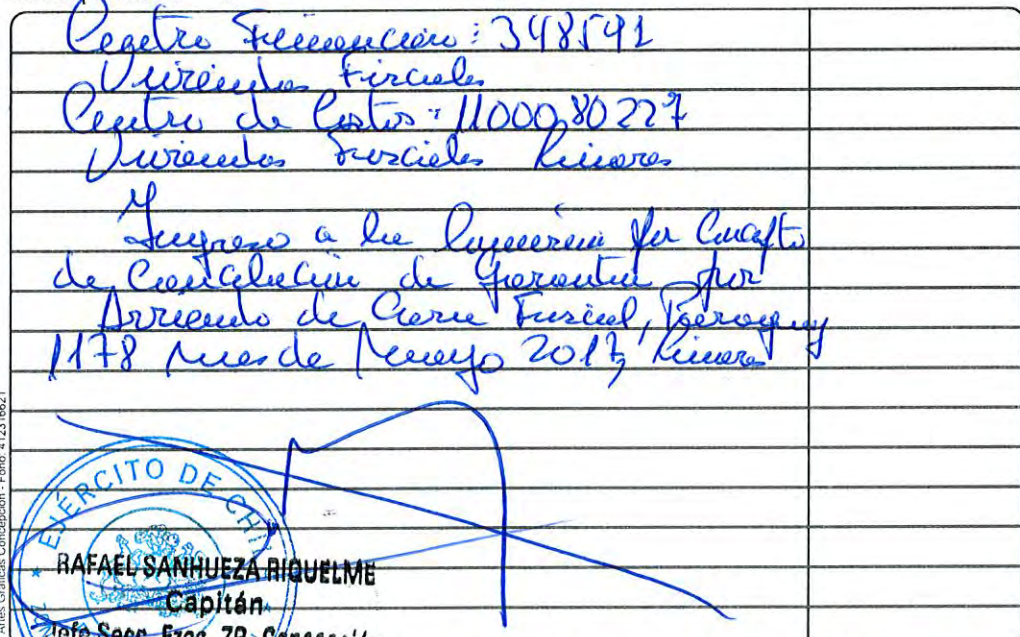 Centro Financiero: 348591
Viviendas Fiscales
Centro de Costos: 1100080227
Viviendas Fiscales Linares
Ingreso a la Comisión por Concepto
de Cancelación de Garantía por
Arriendo de Casa Fiscal, Paraguay
1178 Mes de Mayo 2017, Linares
EJÉRCITO DE CHI
RAFAEL SANHUEZA RIQUELME
Capitán
Jefe Secc. Fzas. ZP. Concepción
Artes Gráficas Concepción - Fono: 412316621